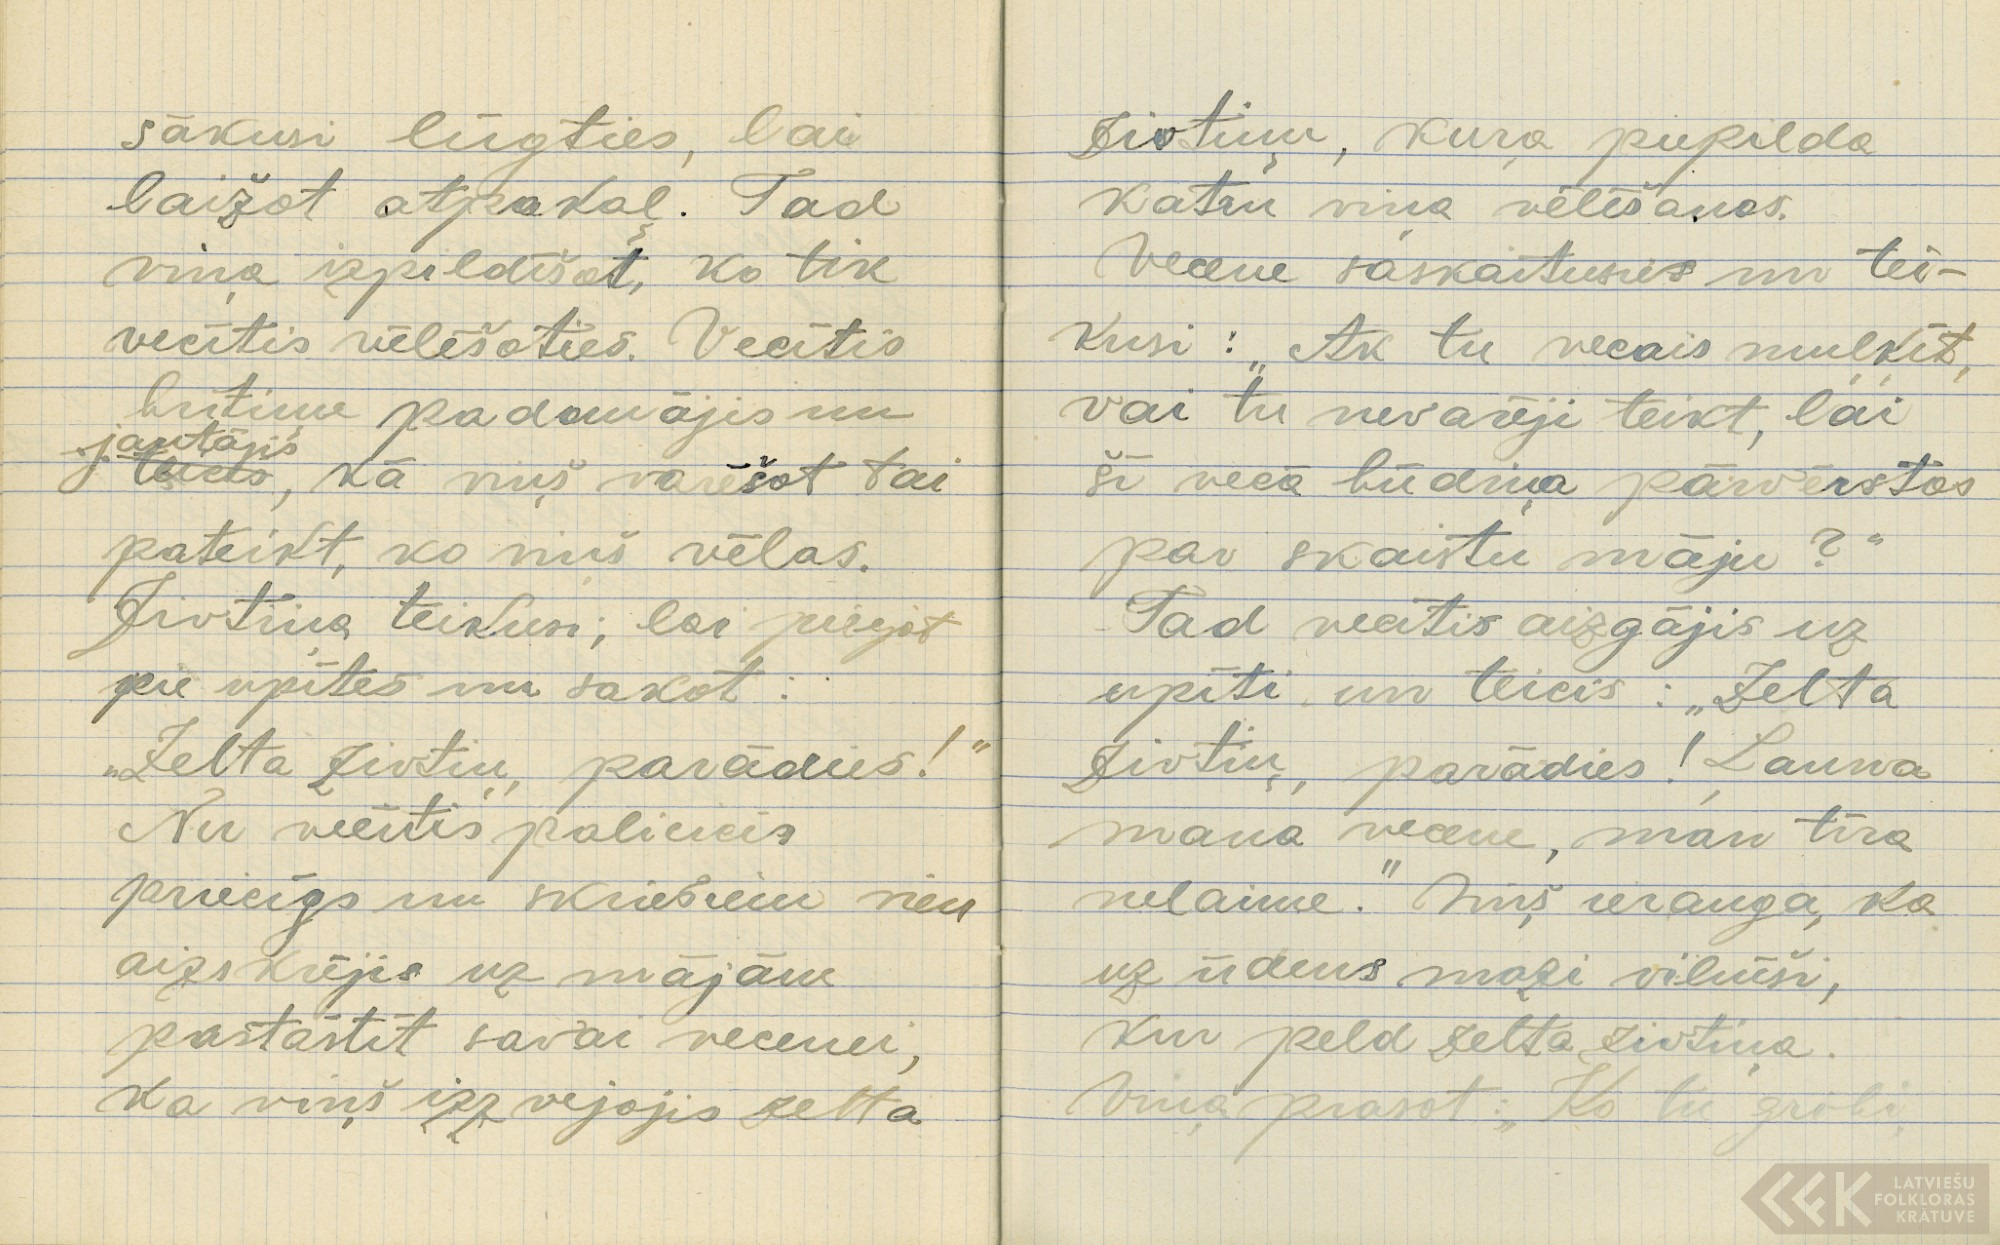 sākusi lūgties, lai
laižot atpakaļ. Tad
viņa izpildīšot, ko tik
vecītis vēlēšoties. Vecītis
brītiņu padomājis un
jautājis
teicis, kā viņš varēšot tai
pateikt, ko viņš vēlas.
Zivtiņa teikusi, lai pieejot
pie upītes un sakot:
„Zelta zivtiņ, parādies!"
Nu vecītis palicis
priecīgs un skriešiem vien
aizskrējis uz mājām
pastāstīt savai vecenei,
ka viņš izzvejojis zelta
zivtiņu, kuŗa piepilda
katru viņa vēlēšanos.
Vecene saskaitusies un tei-
kusi: „Ak tu vecais muļķīt,
vai tu nevarēji teikt, lai
šī vecā būdiņa pārvērstos
par skaistu māju?"
Tad vecītis aizgājis uz
upīti un teicis: „Zelta
zivtiņ, parādies! Ļauna
mana vecene, man tīra
nelaime." Viņš ierauga, ka
uz ūdens mazi vilnīši,
kur peld zelta zivtiņa.
Viņa prasot: „Ko tu gribi,
LATVIEŠU
FOLKLORAS
KRĀTUVE